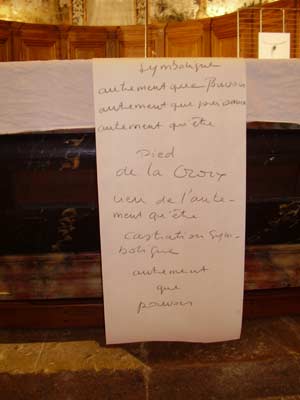 Symbolique
autrement que Pouvoir
autrement que
autement qu'être
Pied
de la Croix
lieu de l'aute-
ment qu'être
castration Sym-
bolique
autement
que
pouvoir